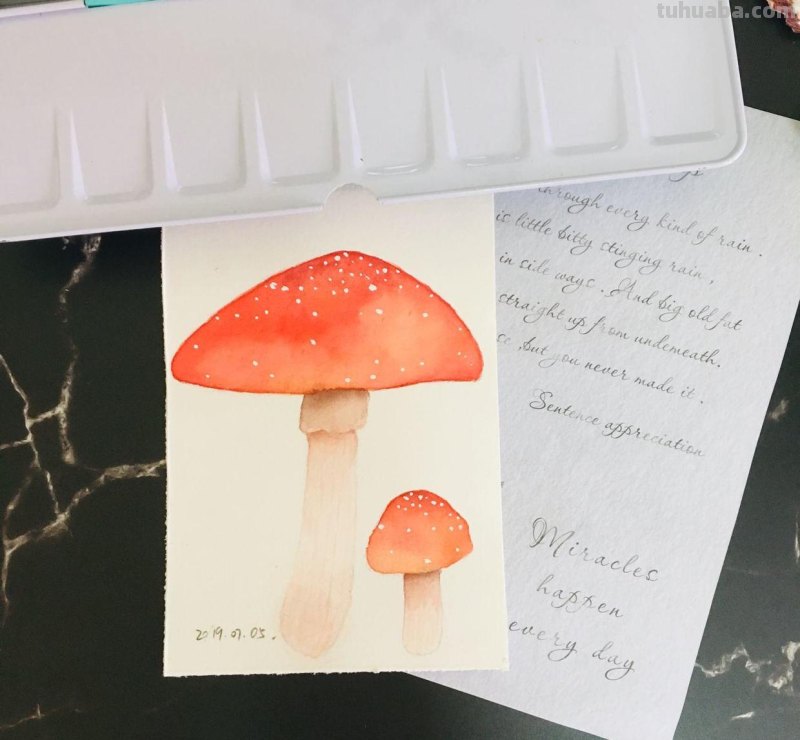 tuhuaba.com
through every kind of rain.
is little bitty stinging rain,
in side ways. And big old fat
straight up from underneath.
se, but you never made it.
Sentence appreciation
Miracles
happen
every day
2019.07.05.